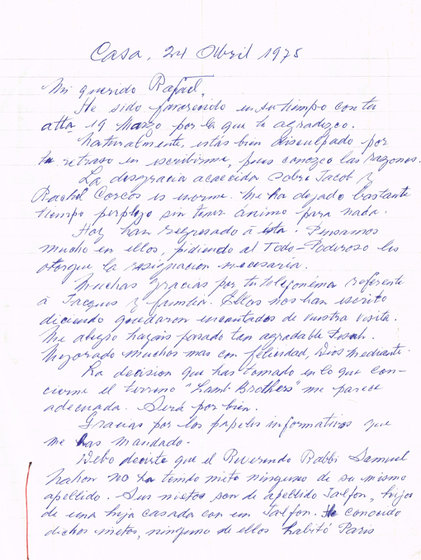 Casa, 24 Abril 1975
Mi querido Rafael,
He sido favorecido en su tiempo con tu
atta 19 Marzo por la que te agradezco.
Naturalmente, estás bien disculpado por
tu retraso en escribirme, pues conozco las razones.
La desgracia acaecida sobre Jacob y
Rachel Corcos es enorme. Me ha dejado bastante
tiempo perplejo sin tener ánimo para nada.
Hoy han regresado a ésta. Pensamos
mucho en ellos, pidiendo al Todo-Poderoso les
otorgue la resignación necesaria.
Muchas gracias por tu telefonema referente
a Jacques y familia. Ellos nos han escrito
diciendo quedaron encantados de vuestra visita.
Me alegro hayáis pasado tan agradable Pesah.
Mejorado muchos mas con felicidad, Dios mediante.
La decisión que has tomado en lo que con-
cierne el terreno "Lamb Brothers" me parece
adecuada. Será por bien.
Gracias por los papeles informativos que
me has mandado.
Debo decirte que el Reverendo Rabbi Samuel
Nahon no ha tenido nieto ninguno de su mismo
apellido. Sus nietos son de apellido Jalfon, hijos
de una hija casada con un Jalfon. He conocido
dichos nietos, ninguno de ellos habitó Paris